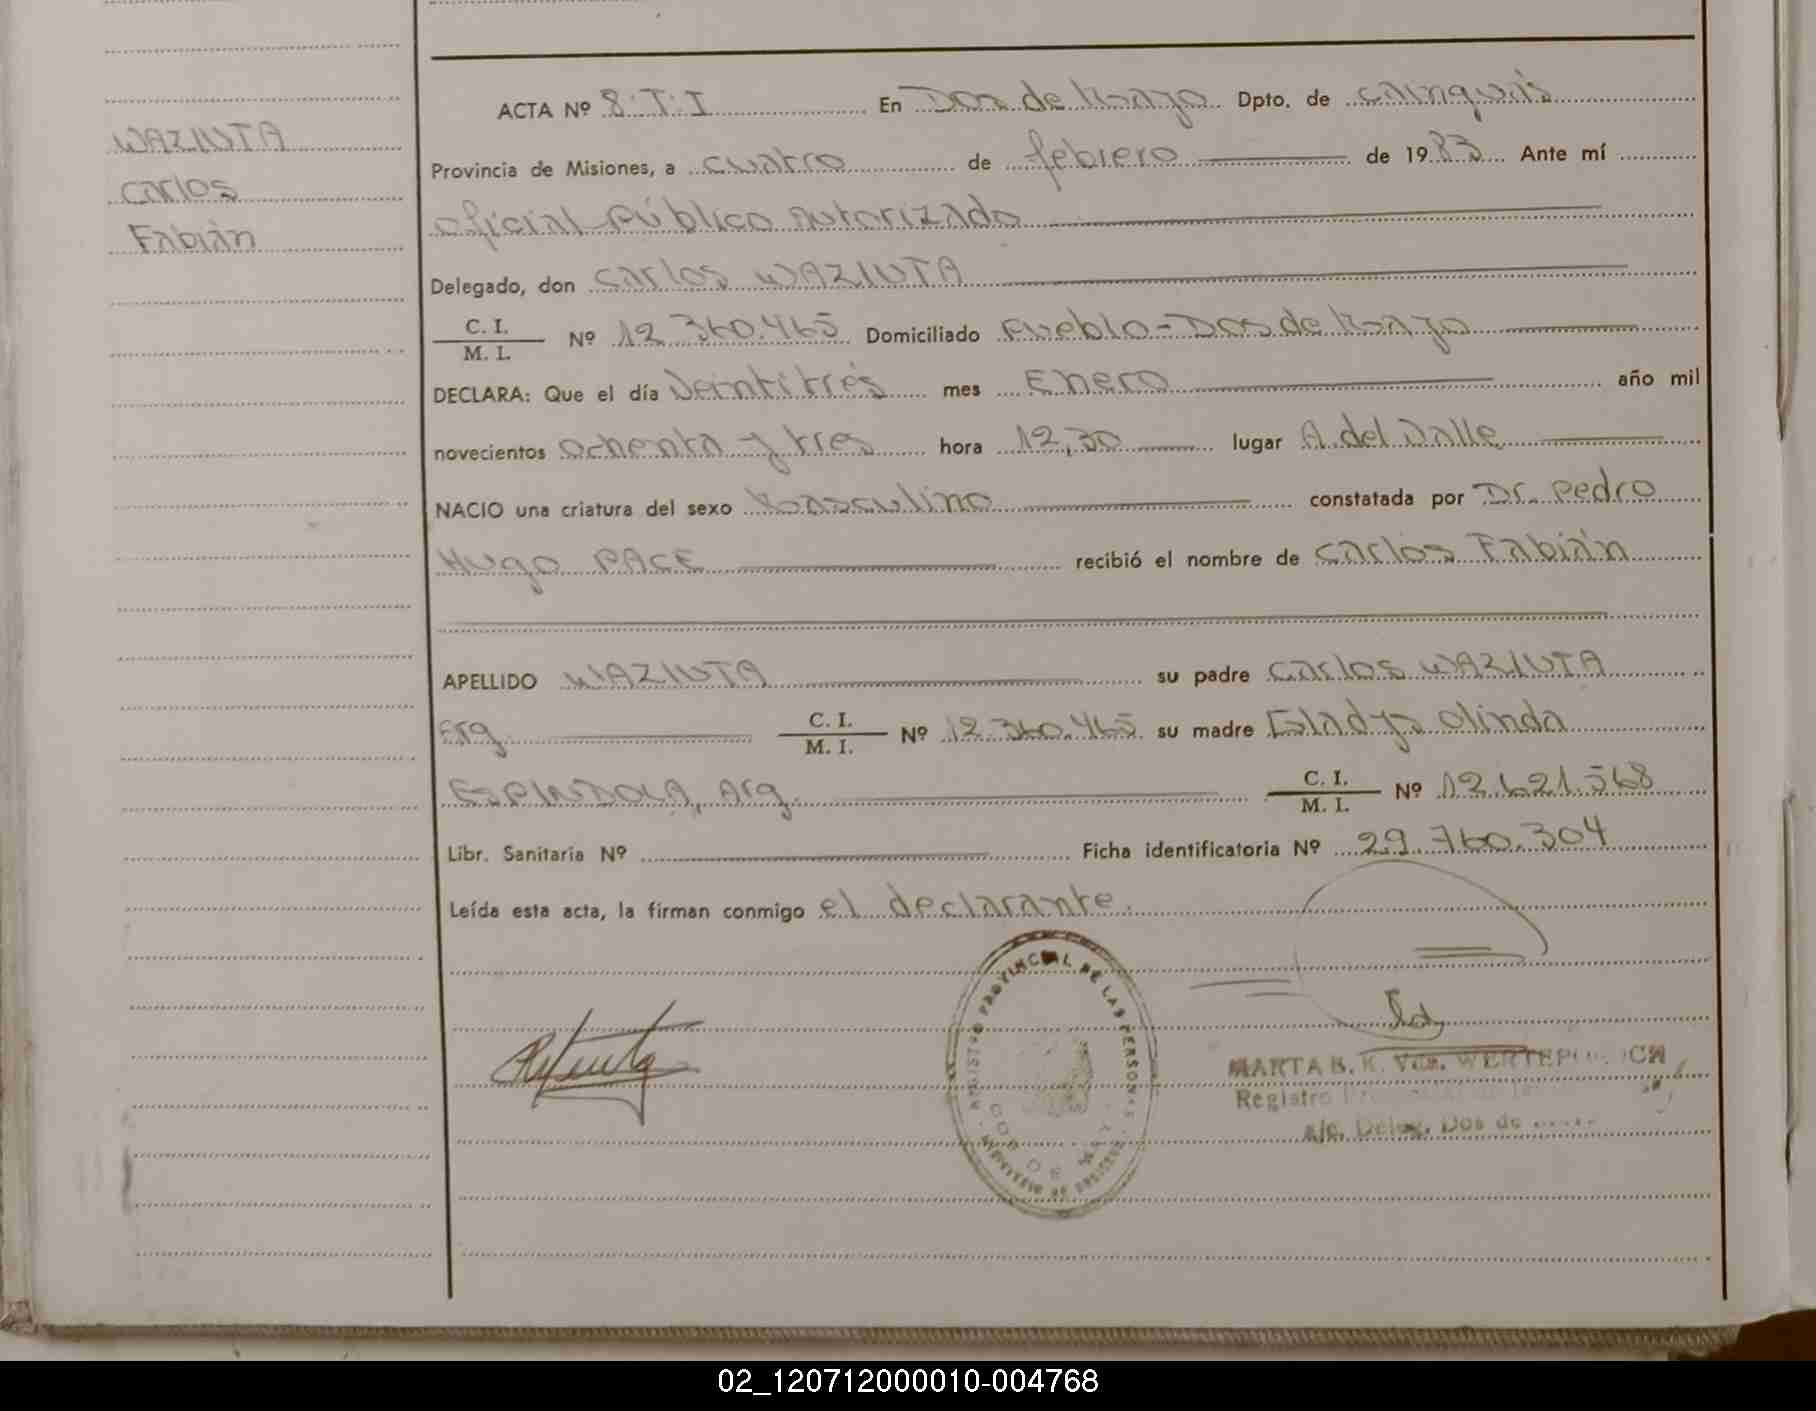 WAZIUTA
Carlos
Fabián
ACTA Nº 8·T·I En Dos de Mayo Dpto. de Cainguás
Provincia de Misiones, a cuatro de febrero de 1983 Ante mí
oficial Público autorizado
Delegado, don Carlos WAZIUTA
C. I.
M. I. Nº 12.360.465 Domiciliado Pueblo-Dos de Mayo
DECLARA: Que el día Veintitrés mes Enero año mil
novecientos ochenta y tres hora 12,30 lugar A. del Valle
NACIO una criatura del sexo Masculino constatada por Dr. Pedro
Hugo PACE recibió el nombre de Carlos Fabián
APELLIDO WAZIUTA su padre Carlos WAZIUTA
Arg. C. I. M. I. Nº 12.360.465 su madre Gladys Olinda
ESPINDOLA, Arg. C. I. M. I. Nº 12.621.568
Libr. Sanitaria Nº Ficha identificatoria Nº 29.760.304
Leída esta acta, la firman conmigo el declarante.
REGISTRO PROVINCIAL DE LAS PERSONAS
DOS DE MAYO
MARTA B. K. Vda.
Registro
a/c. Deleg. Dos de
02_120712000010-004768